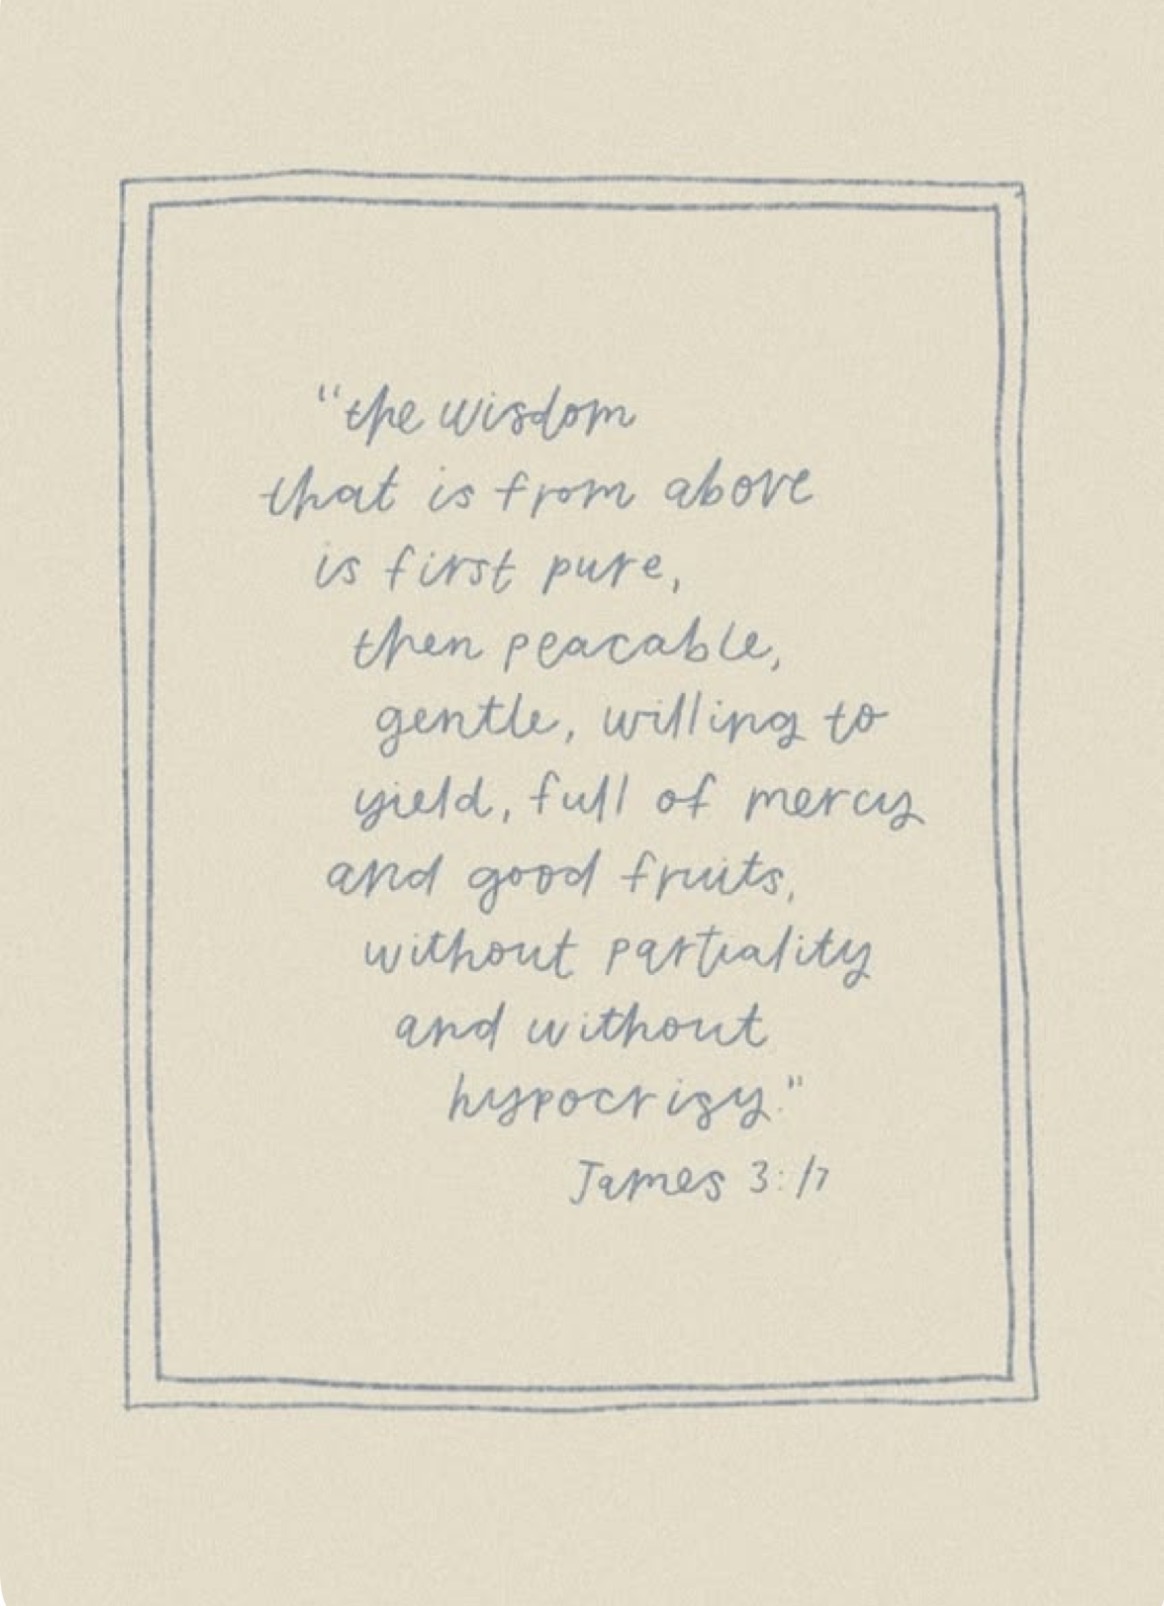 "the wisdom
that is from above
is first pure,
then peacable,
gentle, willing to
yield, full of mercy
and good fruits,
without partiality
and without
hypocrisy."
James 3:17